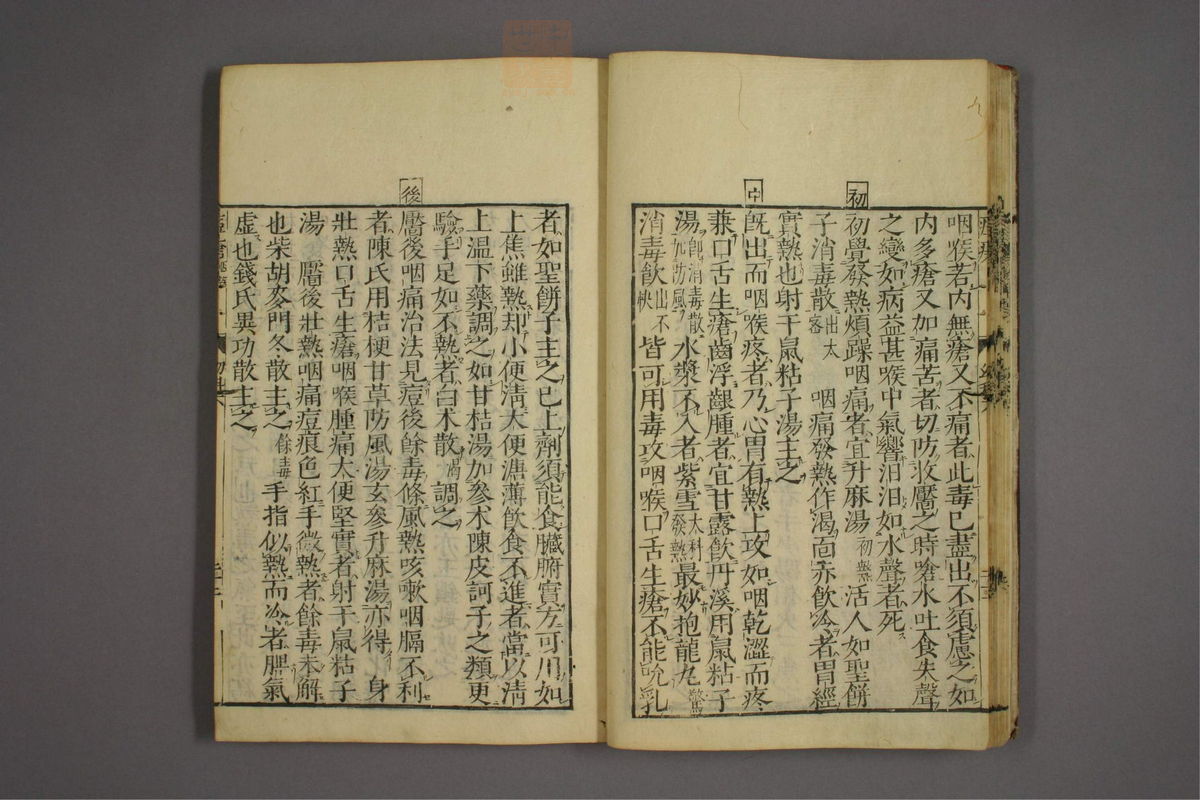 咽喉若内無瘡又不痛者此毒已盡出不須慮之如
内多瘡又加痛苦者切防收靨之時嗆水吐食失聲
之變如病益甚喉中氣響汩汩如水聲者死
初
初覺發熱煩躁咽痛者宜升麻湯初熱活人如聖餅
子消毒散出太審 咽痛發熱作渴面赤飲冷者胃經
實熱也射干鼠粘子湯主之
中
既出而咽喉疼者乃心胃有熱上攻如咽乾澀而疼
兼口舌生瘡齒浮齦腫者宜甘露飲丹溪用鼠粘子
湯即消毒散加防風水漿不入者紫雪太科發熱最妙抱龍丸驚
消毒飲出不快皆可用毒攻咽喉口舌生瘡不能吮乳
者如聖餅子主之已上劑須能食臟腑實方可用如
上焦雖熱却小便淸大便溏薄飲食不進者當以淸
上溫下藥調之如甘桔湯加參朮陳皮訶子之類更
驗手足如不熱者白朮散渴調之
後
靨後咽痛治法見痘後餘毒條風熱咳嗽咽膈不利
者陳氏用桔梗甘草防風湯玄參升麻湯亦得 身
壯熱口舌生瘡咽喉腫痛大便堅實者射干鼠粘子
湯 靨後壯熱咽痛痘痕色紅手微熱者餘毒未解
也柴胡麥門冬散主之餘毒手指似熱而冷者脾氣
虛也錢氏異功散主之